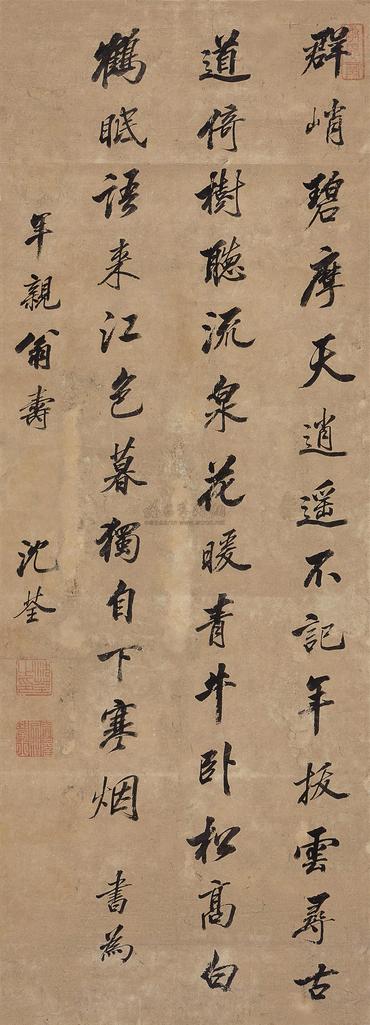 群峭碧摩天逍遥不記年拔雲尋古
道倚樹聽流泉花暖青牛卧松高白
鶴眠語来江色暮獨自下寒烟 書為
年親翁壽 沈荃